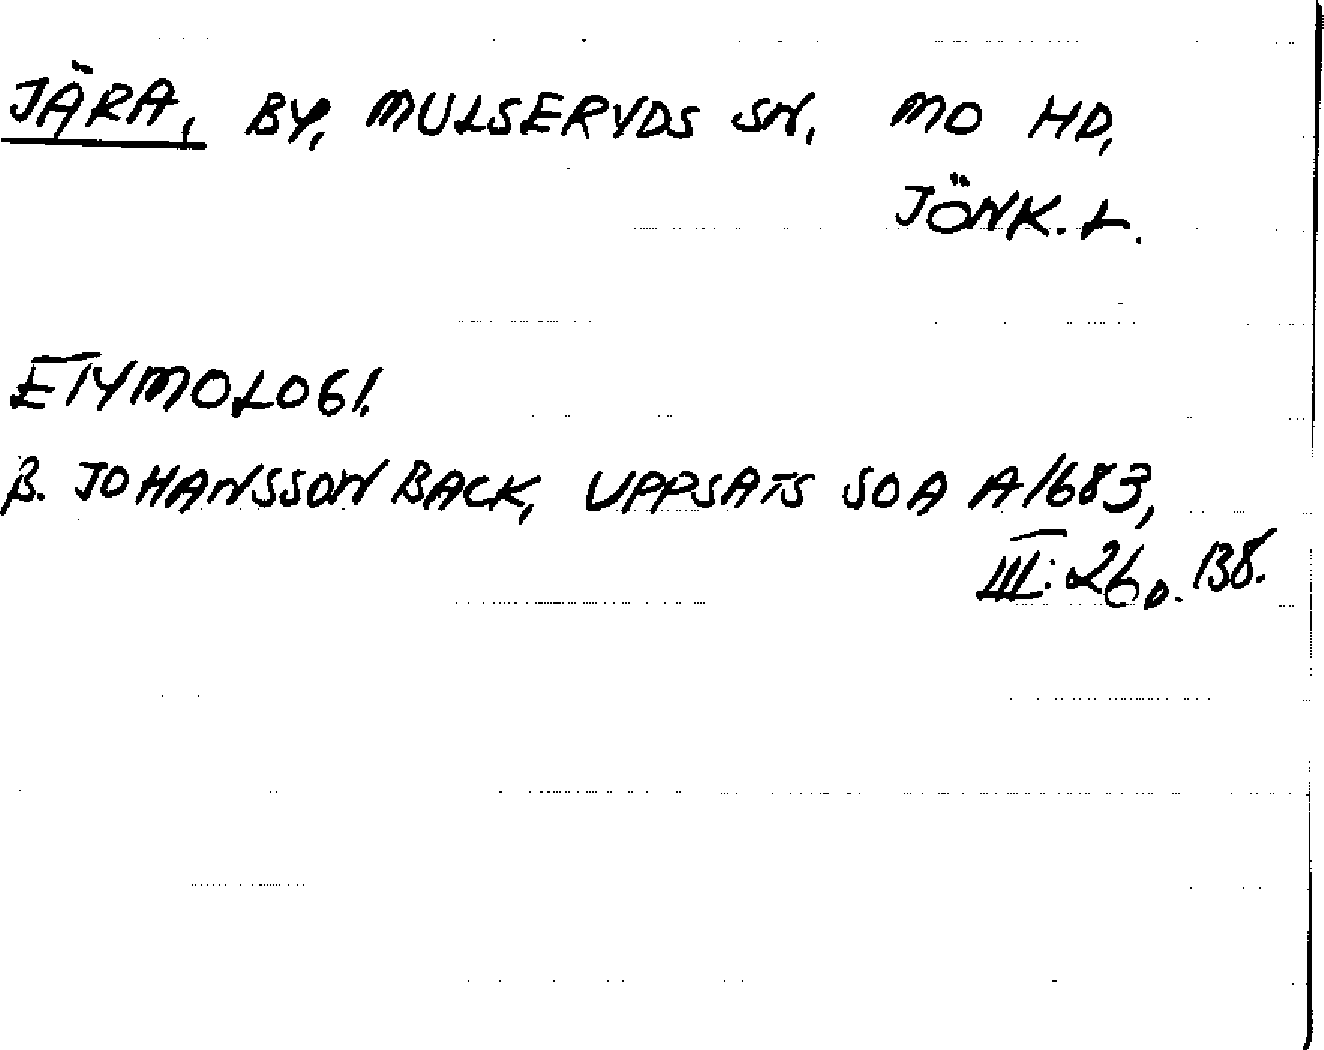 JÄRA, BY, MULSERYDS SN, MO HD,
JÖNK. L.
ETYMOLOGI.
B. JOHANSSON BACK, UPPSATS SOA A1683,
III: 26 o. 138.